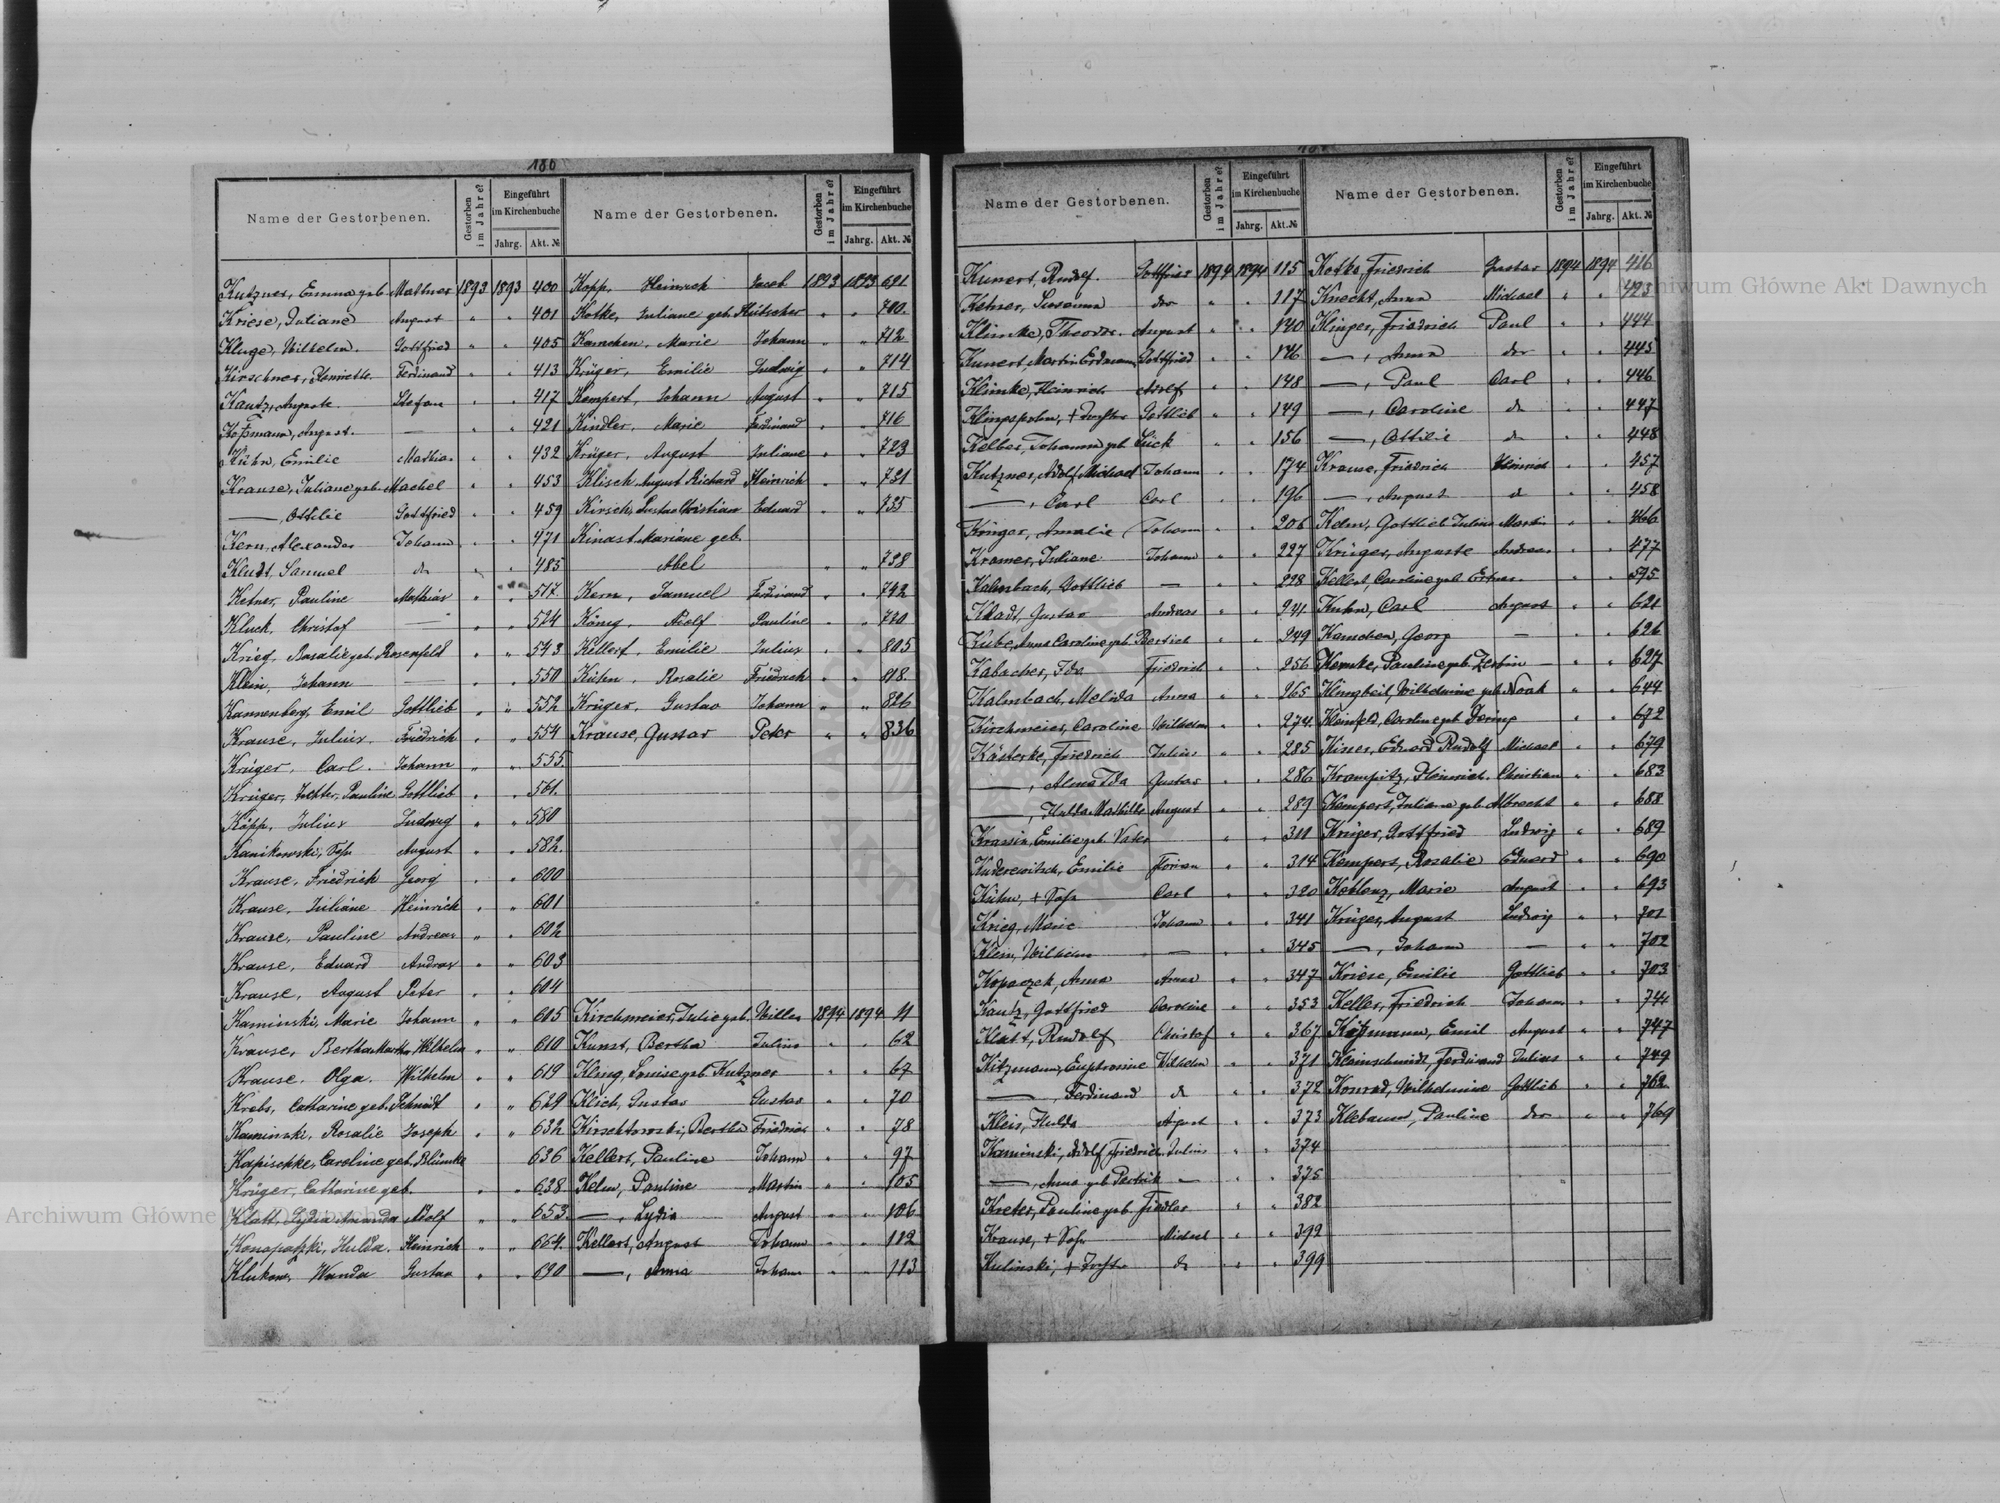 186
Name der Gestorbenen. Gestorben im Jahre? Eingeführt im Kirchenbuche Jahrg. Akt. №
Kutzner, Emma geb. Mattner 1893 1893 400
Kriese, Juliane August " " 401
Kluge, Wilhelm. Gottfried " " 405
Kirschner, Henriette Ferdinand " " 413
Kautz, August Stefan " " 417
Koßmann, August. — " " 421
Kühn, Emilie Mathias " " 432
Krause, Juliane geb. Machel " " 453
—, Ottilie Gottfried " " 459
Kern, Alexander Johann " " 471
Kludt, Samuel do " " 485
Ketner, Pauline Mathias " " 517
Kluck, Christof — " " 524
Krieg, Rosalie geb. Rosenfeld " " 543
Klein, Johann — " " 550
Kannenberg, Emil Gottlieb " " 552
Krause, Julius. Friedrich " " 554
Krüger, Carl. Johann " " 555
Krüger, Tochter, Pauline Gottlieb " " 561.
Köpp, Julius Ludwig " " 580
Kanikowski, Sohn August " " 582.
Krause, Friedrich Georg " " 600
Krause, Juliane Heinrich " " 601
Krause, Pauline Andreas " " 602
Krause, Eduard Andreas " " 603
Krause, August Peter " " 604
Kaminski, Marie Johann " " 605
Krause, Bertha Martha Wilhelm " " 610
Krause, Olga. Wilhelm " " 619
Krebs, Catharine geb. Schmidt " " 629
Kaminski, Rosalie Joseph " " 632
Kapischke, Caroline geb. Blümke 636
Krüger, Catharine geb. " " 638
Klatt, Lydia Amanda Adolf " " 653.
Konopatzki, Hulda. Heinrich " " 664.
Klukow, Wanda Gustav " " 690
Name der Gestorbenen. Gestorben im Jahre? Eingeführt im Kirchenbuche Jahrg. Akt. №
Kopp, Heinrich Jacob 1893 1893 691
Kotke, Juliane geb. Klütscher " " 700.
Kamchen, Marie Johann " " 712
Krüger, Emilie Ludwig " " 714
Kempert, Johann August " " 715
Kindler, Marie Ferdinand " " 716
Krüger, August Juliane " " 723
Klisch August Richard Heinrich " " 731
Kirsch, Gustav Christian Eduard " " 735
Kinast Mariane geb.
Abel " " 738
Kern, Samuel Ferdinand " " 742
König, Adolf Pauline " " 770
Kellert, Emilie Julius " " 805
Kühn, Rosalie Friedrich " " 818.
Krüger, Gustav Johann " " 826
Krause, Gustav Peter " " 836
Kirchmeier, Julie geb. Willer 1894 1894 11
Kunst, Bertha Julius " " 62
Kling, Louise geb. Kutzner " " 67
Klich, Gustav Gustav " " 70
Kirschkowski, Bertha Friedrich " " 78
Kellert, Pauline Johann " " 97
Kelm, Pauline Martin " " 105
—, Lydia August " " 106
Kellert, August Johann " " 112
—, Anna Johann " " 113
Name der Gestorbenen. Gestorben im Jahre? Eingeführt im Kirchenbuche Jahrg. Akt. №
Kunert, Rudolf. Gottfried 1894 1894 115
Ketner, Susanna do " " 117
Klimke, Theodor. August " " 140
Kunert, Martin Erdmann Gottfried " " 146
Klimke, Heinrich Adolf " " 148
Klingspohn, + Tochter Gottlieb " " 149
Kelber, Johanna geb. Lück " " 156
Kutzner, Adolf Michael Johann " " 174
—, Carl Carl " " 196
Krüger, Amalie Johann " " 206
Kramer, Juliane Johann " " 227
Kalmbach, Gottlieb — " " 228
Kladt, Gustav Andreas " " 241
Kube, Anna Caroline geb. Bertich " " 249
Kabacher, Ida Friedrich " " 256
Kalmbach, Melida Anna " " 265
Kirchmeier, Caroline Wilhelm " " 274.
Kästerke, Friedrich Julius " " 285
—, Alma Ida Gustav " " 286
—, Hulda Mathilde August " " 289
Krassin, Emilie geb. Vater " " 311
Kuderewitsch, Emilie Florian " " 314
Kühn, + Sohn Carl " " 320
Krieg, Marie Johann " " 341
Klein, Wilhelm — " " 345
Kopaczek, Anna Anna " " 347
Kautz, Gottfried Caroline " " 353
Klatt, Rudolf Christof " " 367
Kitzmann, Euphrosine Wilhelm " " 371
—, Ferdinand do " " 372
Kleis, Hulda August " " 373
Kaminski, Adolf Friedrich Julius " " 374
—, Anna geb. — " " 375
Kreter, Pauline geb. Fiedler " " 382
Krause, + Sohn Michael " " 392
Kulinski, + Tochter do " " 399
Name der Gestorbenen. Gestorben im Jahre? Eingeführt im Kirchenbuche Jahrg. Akt. №
Kotke, Friedrich Gustav 1894 1894 416
Knecht, Anna Michael " " 423
Klinger, Friedrich Paul " " 444
—, Anna do " " 445
—, Paul Carl " " 446
—, Caroline do " " 447
—, Ottilie do " " 448
Krause, Friedrich Heinrich " " 457
—, August do " " 458
Kelm, Gottlieb Julius Martin " " 466
Krüger, Auguste Andreas " " 477
Kellert, Caroline geb. " " 595
Kuhn, Carl August " " 621
Kamchen, Georg — " " 626
Kemke, Pauline geb. Zerbin — " " 627
Klingbeil, Wilhelmine geb. Noak " " 644
Kleinfeld, Caroline geb. Döring " " 672
Kiner, Eduard Rudolf Michael " " 679
Krampitz, Heinrich. Christian " " 683
Kempert, Juliana geb. Albrecht " " 688
Krüger, Gottfried Ludwig " " 689
Kempert, Rosalie Eduard " " 690
Koblenz, Marie August " " 693
Krüger, August Ludwig " " 701
—, Johann — " " 702
Kriese, Emilie Gottlieb " " 703
Keller, Friedrich Johann " " 744
Koßmann, Emil August " " 747
Kleinschmidt, Ferdinand Julius " " 749
Konrad, Wilhelmine Gottlieb " " 762
Klebaum, Pauline do " " 769
Archiwum Główne Akt Dawnych
Archiwum Główne Akt Dawnych